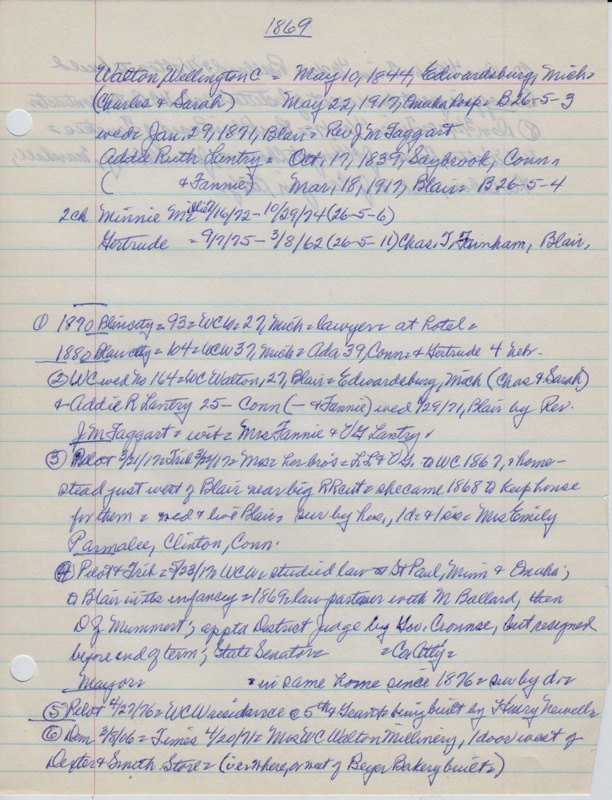 1869
Walton, Wellington C = May 10, 1844, Edwardsburg, Mich =
(Charles & Sarah) May 22, 1917, Omaha Hosp = B26-5-3
wed = Jan. 29, 1871, Blair = Rev J M Taggart
Addie Ruth Lantry = Oct. 17, 1839, Saybrook, Conn,
( & Fannie) Mar. 18, 1917, Blair = B26-5-4
2ch Minnie 7/16/72 - 10/29/74 (26-5-6)
Gertrude = 9/7/75 - 3/8/62 (26-5-11) Chas. T. Farnham, Blair,
① 1870 Blair city = 93 = WCW = 27, Mich = lawyer = at hotel =
1880 Blair city = 104 = WCW 37, Mich = Ada 39, Conn = & Gertrude 4 Nebr.
② WC wed No 164 = WC Walton, 27, Blair = Edwardsburg, Mich (Chas & Sarah)
& Addie R Lantry 25 - Conn (- & Fannie) wed 1/29/71, Blair by Rev.
J M Taggart = wit = Mrs Fannie & Lantry
③ Pilot 3/21/17 = Trib = Mrs = her bro's = to WC 1867, & home-
stead just west of Blair near big RR cut = she came 1868 to keep house
for them = wed & live Blair = sur by hus, 1 d = & 1 sis = Mrs Emily
Parmalee, Clinton, Conn.
④ Pilot & Trib = 5/23/17 WCW = studied law @ St Paul, Minn & Omaha;
to Blair in its infancy = 1869 = law partner with M Ballard, then
O Z Mummert; appt'd District Judge by Gov. Crounse, but resigned
before end of term; State Senator = = Co Atty =
Mayor = = in same home since 1876 = sur by d =
⑤ Pilot 4/27/76 = WCW residence @ 5th & Grant = being built by Henry Newell =
⑥ Dem 3/8/06 = Times 4/20/71 = Mrs WC Walton Millinery, 1 door west of
Dexter & Smith Store = (is where, or west of Beyer Bakery built =)